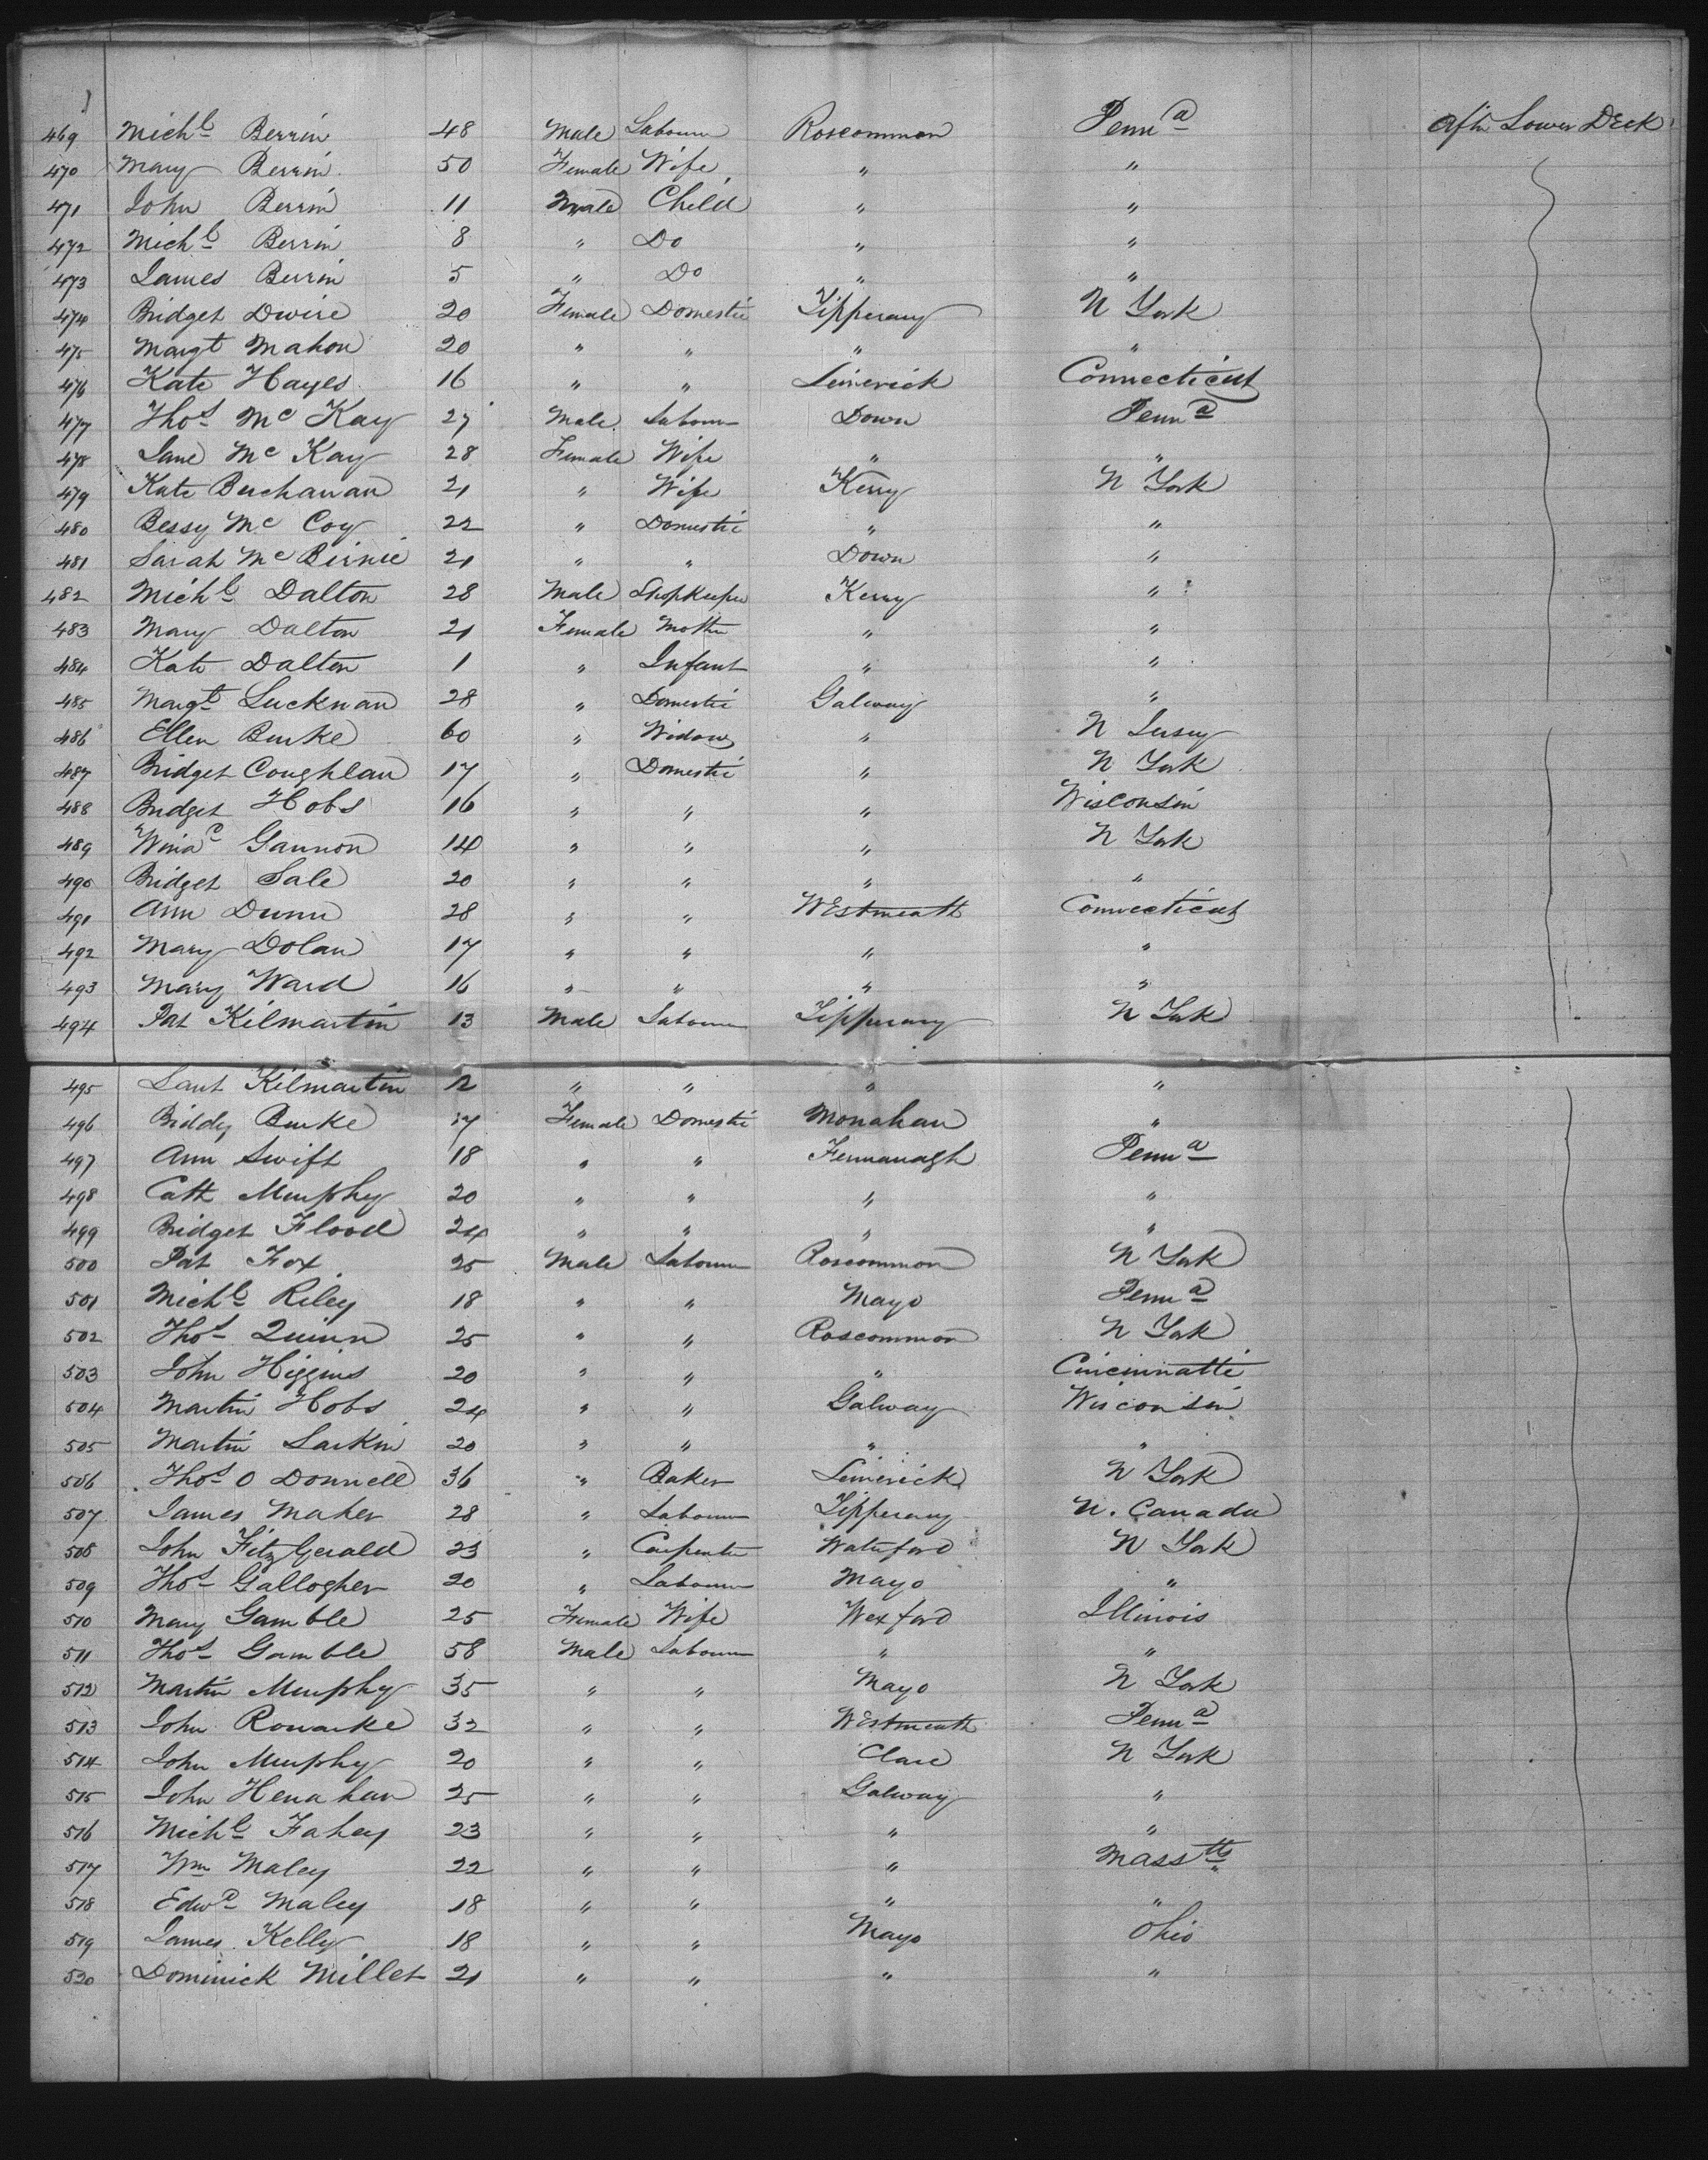 469 Michl Berrin 48 Male Labourer Roscommon Penna Aftr Lower Deck
470 Mary Berrin 50 Female Wife " "
471 John Berrin 11 Male Child " "
472 Michl Berrin 8 " Do " "
473 James Berrin 5 " Do " "
474 Bridget Dwire 20 Female Domestic Tipperary N York
475 Margt Mahon 20 " " " "
476 Kate Hayes 16 " " Limerick Connecticut
477 Thos Mc Kay 27 Male Labourer Down Penna
478 Jane Mc Kay 28 Female Wife " "
479 Kate Buchanan 21 " Wife Kerry N York
480 Bessy Mc Coy 22 " Domestic " "
481 Sarah Mc Birnie 21 " " Down "
482 Michl Dalton 28 Male Shopkeeper Kerry "
483 Mary Dalton 21 Female Mother " "
484 Kate Dalton 1 " Infant " "
485 Margt Lucknan 28 " Domestic Galway "
486 Ellen Burke 60 " Widow " N Jersey
487 Bridget Coughlan 17 " Domestic " N York
488 Bridget Hobs 16 " " " Wisconsin
489 Winad Gannon 14 " " " N York
490 Bridget Sale 20 " " " "
491 Ann Dunn 28 " " Westmeath Connecticut
492 Mary Dolan 17 " " " "
493 Mary Ward 16 " " " "
494 Pat Kilmartin 13 Male Labourer Tipperary N York
495 Kilmartin 12 " " " "
496 Biddy Burke 17 Female Domestic Monahan "
497 Ann Swift 18 " " Fermanagh Penna
498 Cath Murphy 20 " " " "
499 Bridget Flood 24 " " " "
500 Pat Fox 25 Male Labourer Roscommon N York
501 Michl Riley 18 " " Mayo Penna
502 Thos Quinn 25 " " Roscommon N York
503 John Higgins 20 " " " Cincinnatti
504 Martin Hobs 24 " " Galway Wisconsin
505 Martin Larkin 20 " " " "
506 Thos O Donnell 36 " Baker Limerick N York
507 James Maher 28 " Labourer Tipperary N. Canada
508 John FitzGerald 23 " Carpenter Waterford N York
509 Thos Gallogher 20 " Labourer Mayo "
510 Mary Gamble 25 Female Wife Wexford Illinois
511 Thos Gamble 58 Male Labourer " "
512 Martin Murphy 35 " " Mayo N York
513 John Rouarke 32 " " Westmeath Penna
514 John Murphy 20 " " Clare N York
515 John Henahan 25 " " Galway "
516 Michl Fahey 23 " " " "
517 Wm Maley 22 " " " Masstts
518 Edwd Maley 18 " " " "
519 James Kelly 18 " " Mayo Ohio
520 Dominick Millet 21 " " " "